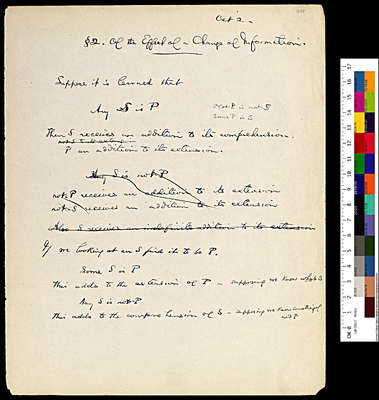 Oct 2 -
§2. Of the Effect of a Change of Information.
Suppose it is learned that
Any S is P
Not-P is not-S
Some P is S
Then S receives an addition to its comprehension.
P an addition to its extension.
Any S is not P
not-P receives an addition to its extension
not-S receives an addition to its extension
Also S receives an indefinite addition to its extension
If we looking at an S find it to be P.
Some S is P
This adds to the extension of P - supposing we know which S
Any S is not-P
This adds to the comprehension of S - supposing we know
not P